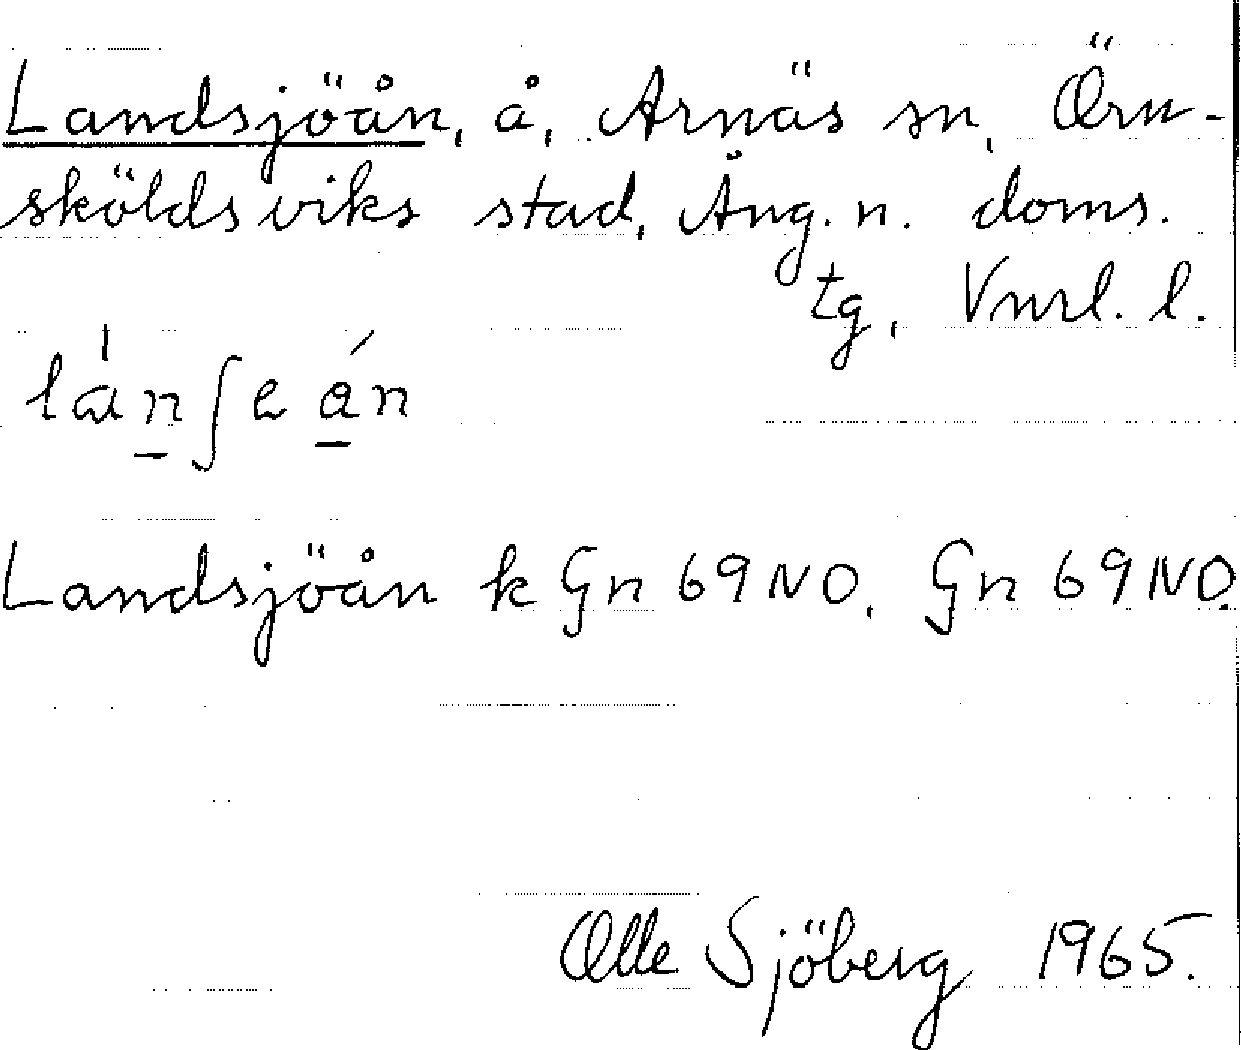 Landsjöån, å, Arnäs sn, Örn-
sköldsviks stad, Ång. n. doms.
tg, Vnrl. l.
Landsjöån k Gn 69 NO, Gn 69 NO.
Olle Sjöberg 1965.